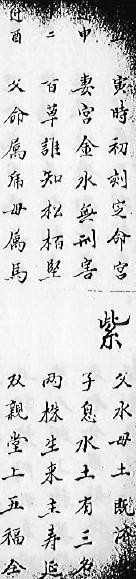 寅時初刻定命宮
父水母土既濟
申 妻宮金水無刑害
紫
子息水土有三名
二 百草誰知松栢堅
两株生來主寿延
酉 父命属虎母属馬
双親堂上五福全